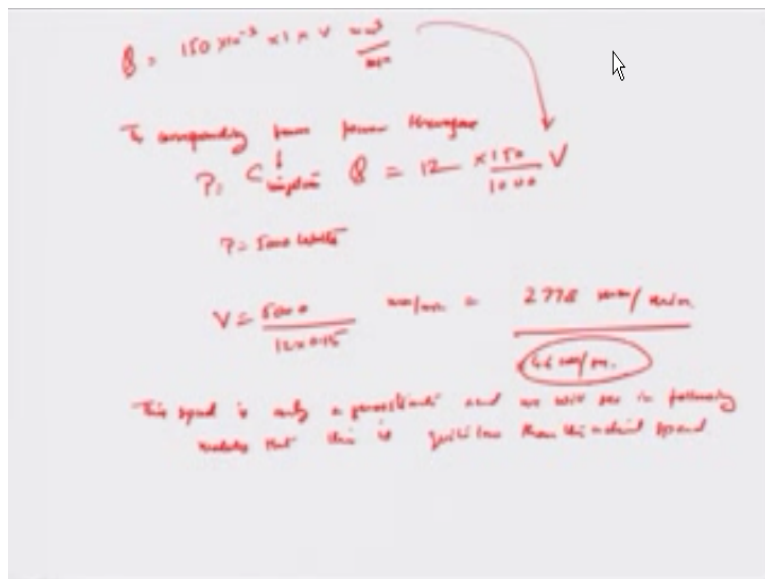 Q = 150 × 10⁻³ × 1 × V mm³/min
The corresponding power
P = C Q = 12 × 150/1000 V
P = 5000 Watts
V = 5000/12×0.15 mm/min = 2778 mm/min
46 mm/
This speed is only a and we will see in following
that this is quite low than the actual speed